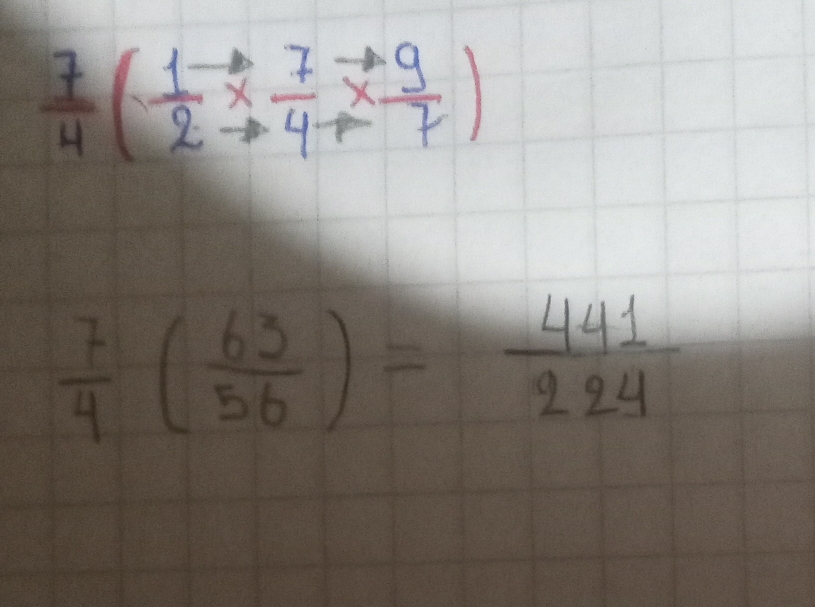 7/4 ( 1/2 → × → 7/4 → × → 9/7 )
7/4 ( 63/56 ) = 441/224